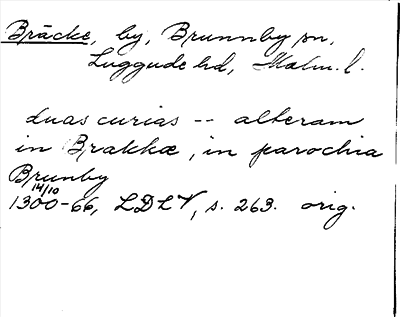 Bräcke, by, Brunnby sn,
Luggude hd, Malm. l.
duas curias -- alteram
in Brakkæ, in parochia
Brunby
14/10
1300-66, LDLV, s. 263. orig.